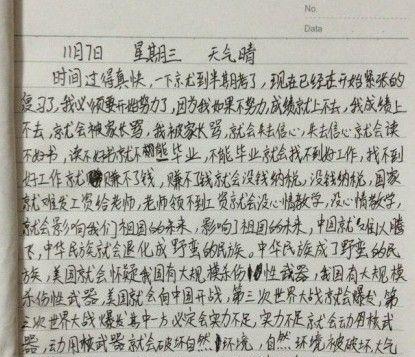 No.
Data
11月7日 星期三 天气晴
时间过得真快,一下尤到半期考了,现在已经在开始紧张的
复习了,我必须要开始努力了,因为我如果不努力,成绩就上不去,我成绩上
不去,就会被家长骂,我被家长骂,就会失去信心,失去信心就会读
不好书,读不好书就不能毕业,不能毕业就会找不到好工作,找不到
好工作就赚不了钱,赚不了钱就会没钱纳税,没钱纳税,国家
就难发工资给老师,老师领不到工资就会没心情教学,没心情教学,
就会影响我们祖国的未来,影响了祖国的未来,中国就难以腾
飞,中华民族就会退化成野蛮的民族。中华民族成了野蛮的民
族,美国就会怀疑我国有大规模杀伤性武器,我国有大规模
杀伤性武器,美国就会向中国开战,第三次世界大战就会爆发,第
三次世界大战爆发其中一方必定会实力不足,实力不足就会动用核武
器,动用核武器就会破坏自然环境,自然环境被破坏,大气